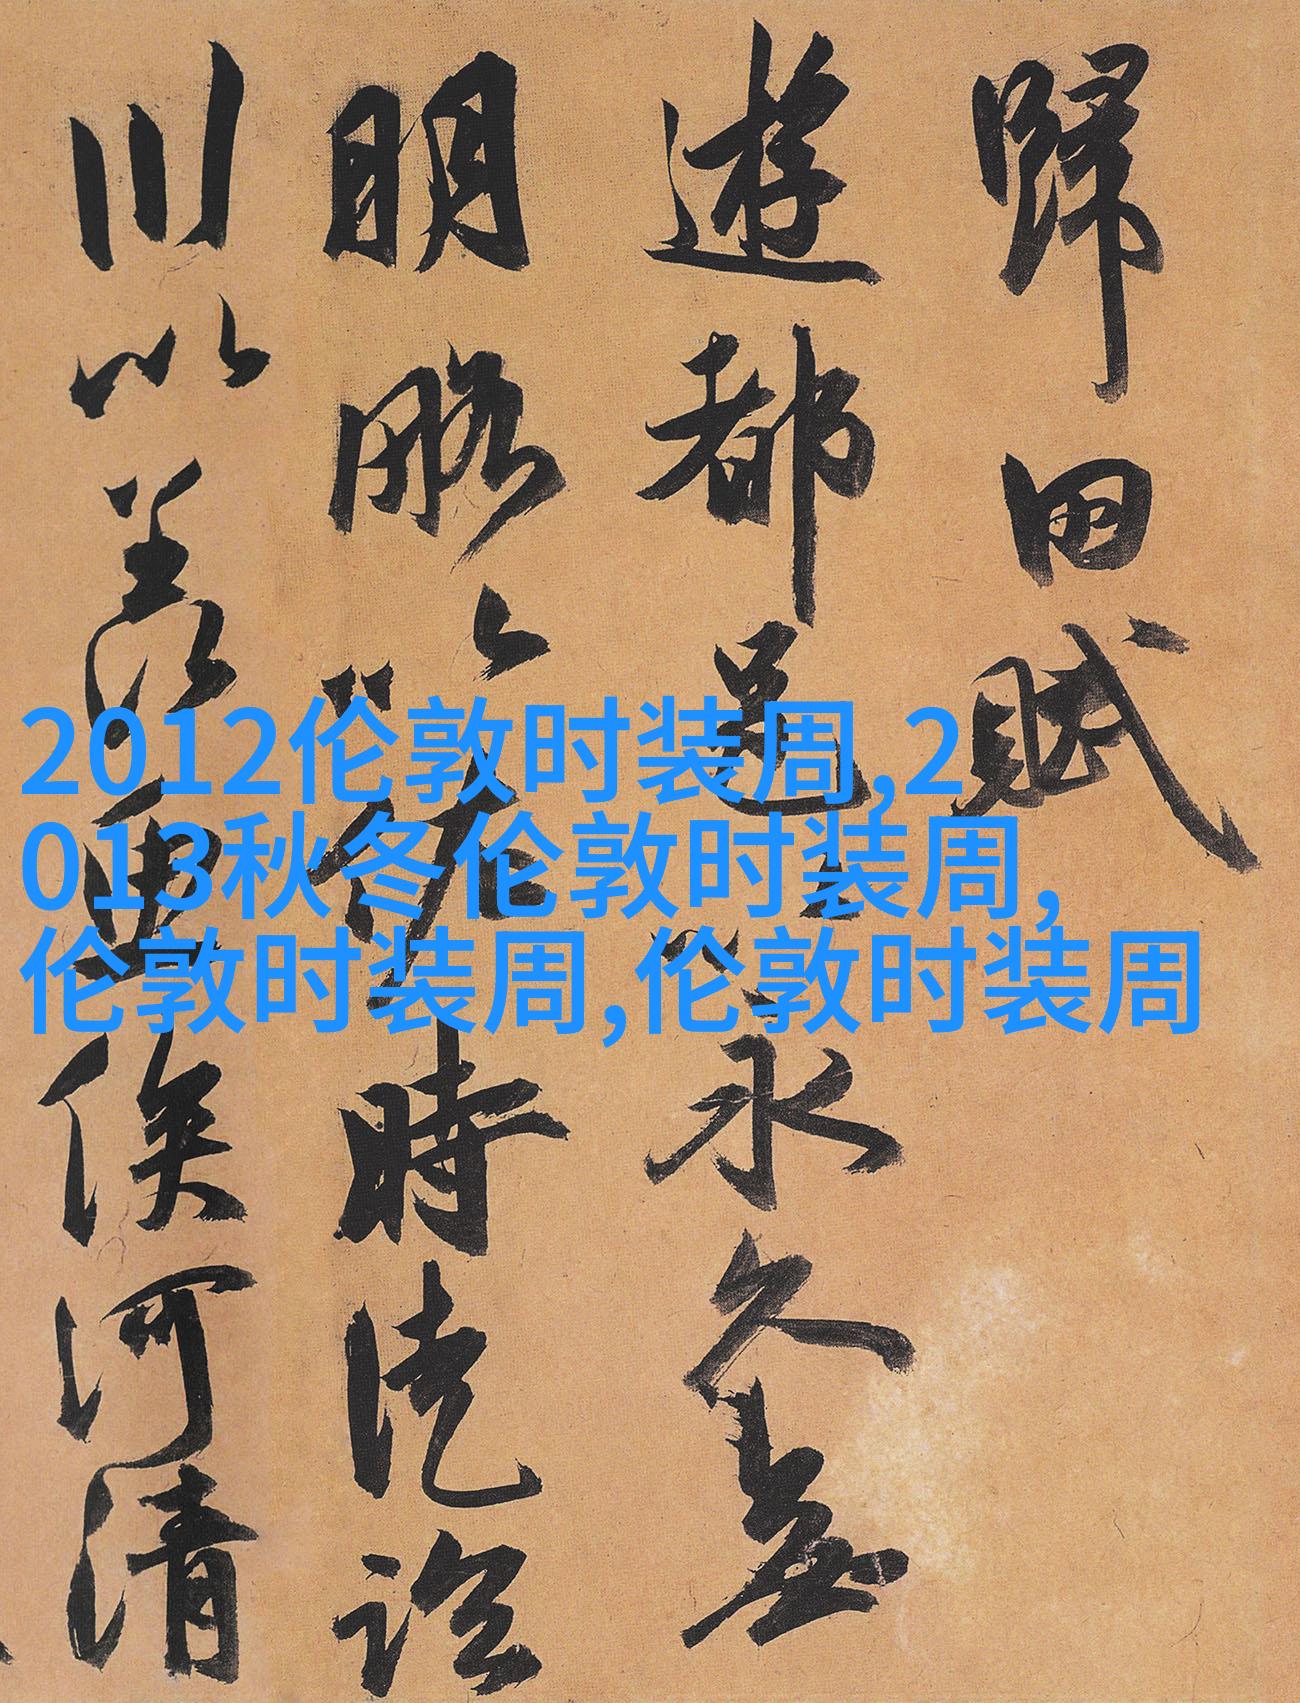 歸田賦
遊都邑以永久無
明略以佐時徒臨
川以羡魚俟河清
2012伦敦时装周,2
013秋冬伦敦时装周,
伦敦时装周,伦敦时装周